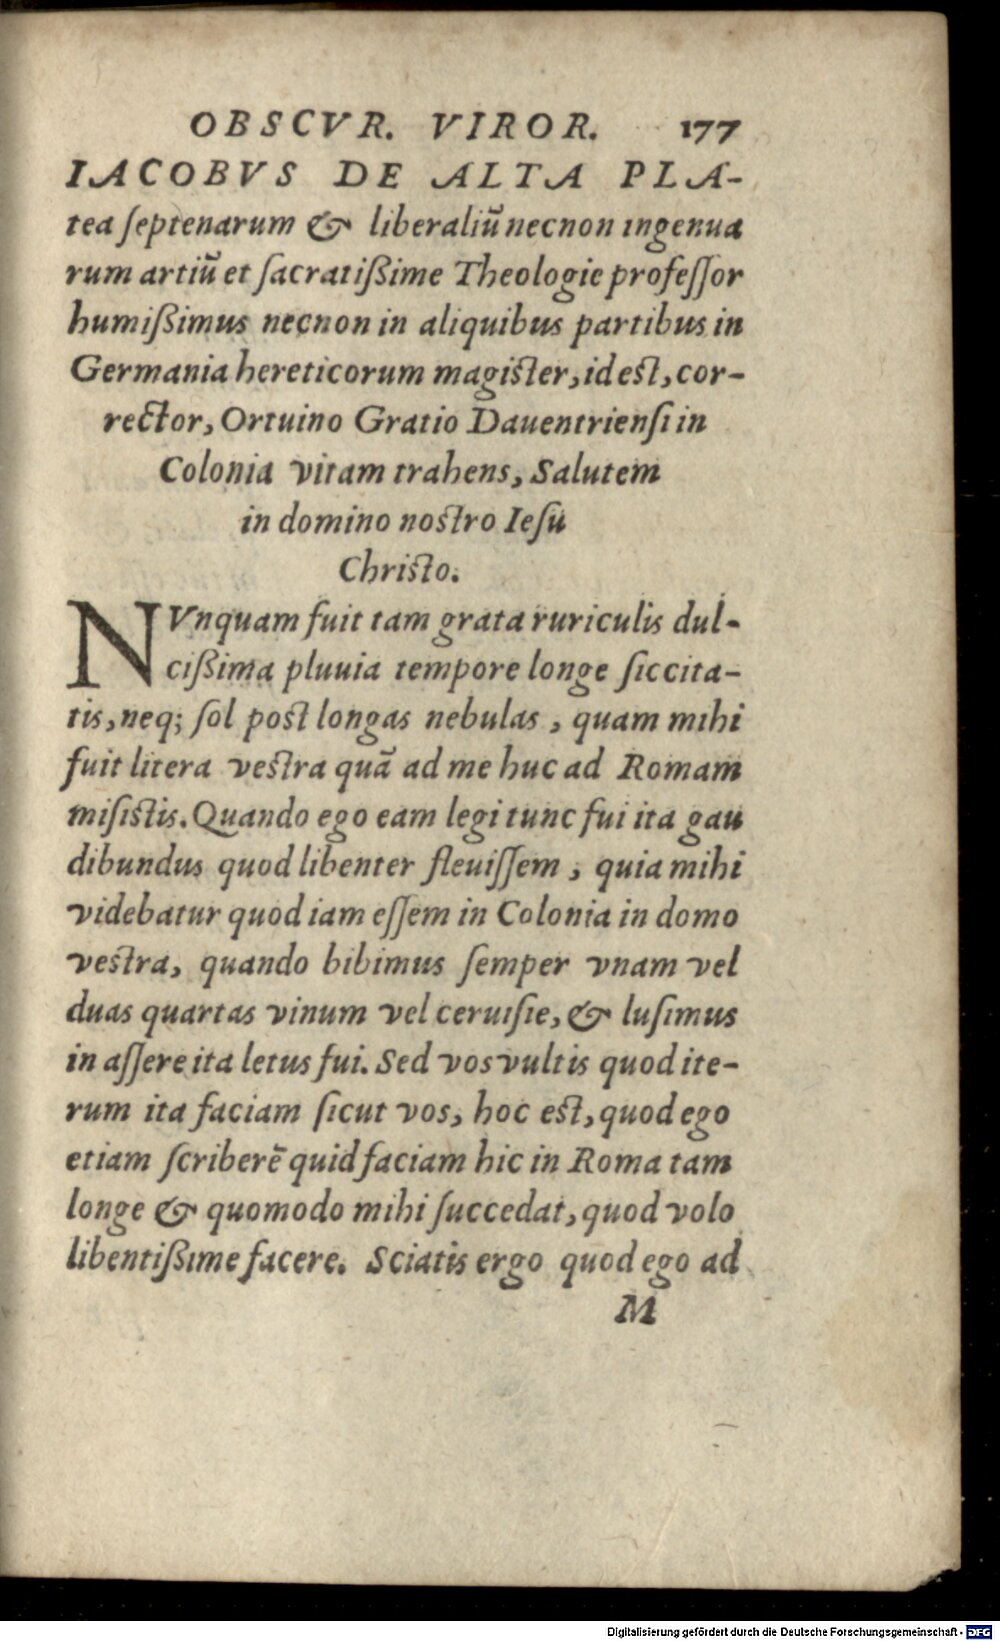 OBSCVR. VIROR. 177
IACOBVS DE ALTA PLA-
tea ſeptenarum & liberaliũ necnon ingenua
rum artiũ et ſacratißime Theologie profeſſor
humißimus necnon in aliquibus partibus in
Germania hereticorum magister, id est, cor-
rector, Ortuino Gratio Dauentrienſi in
Colonia vitam trahens, Salutem
in domino nostro Ieſu
Christo.
NVnquam fuit tam grata ruriculis dul-
cißima pluuia tempore longe ſiccita-
tis, neq; ſol post longas nebulas, quam mihi
fuit litera vestra quã ad me huc ad Romam
miſistis. Quando ego eam legi tunc fui ita gau
dibundus quod libenter fleuiſſem, quia mihi
videbatur quod iam eſſem in Colonia in domo
vestra, quando bibimus ſemper vnam vel
duas quartas vinum vel ceruiſie, & luſimus
in aſſere ita letus fui. Sed vos vultis quod ite-
rum ita faciam ſicut vos, hoc est, quod ego
etiam ſcriberẽ quid faciam hic in Roma tam
longe & quomodo mihi ſuccedat, quod volo
libentißime facere. Sciatis ergo quod ego ad
M
Digitalisierung gefördert durch die Deutsche Forschungsgemeinschaft - DFG